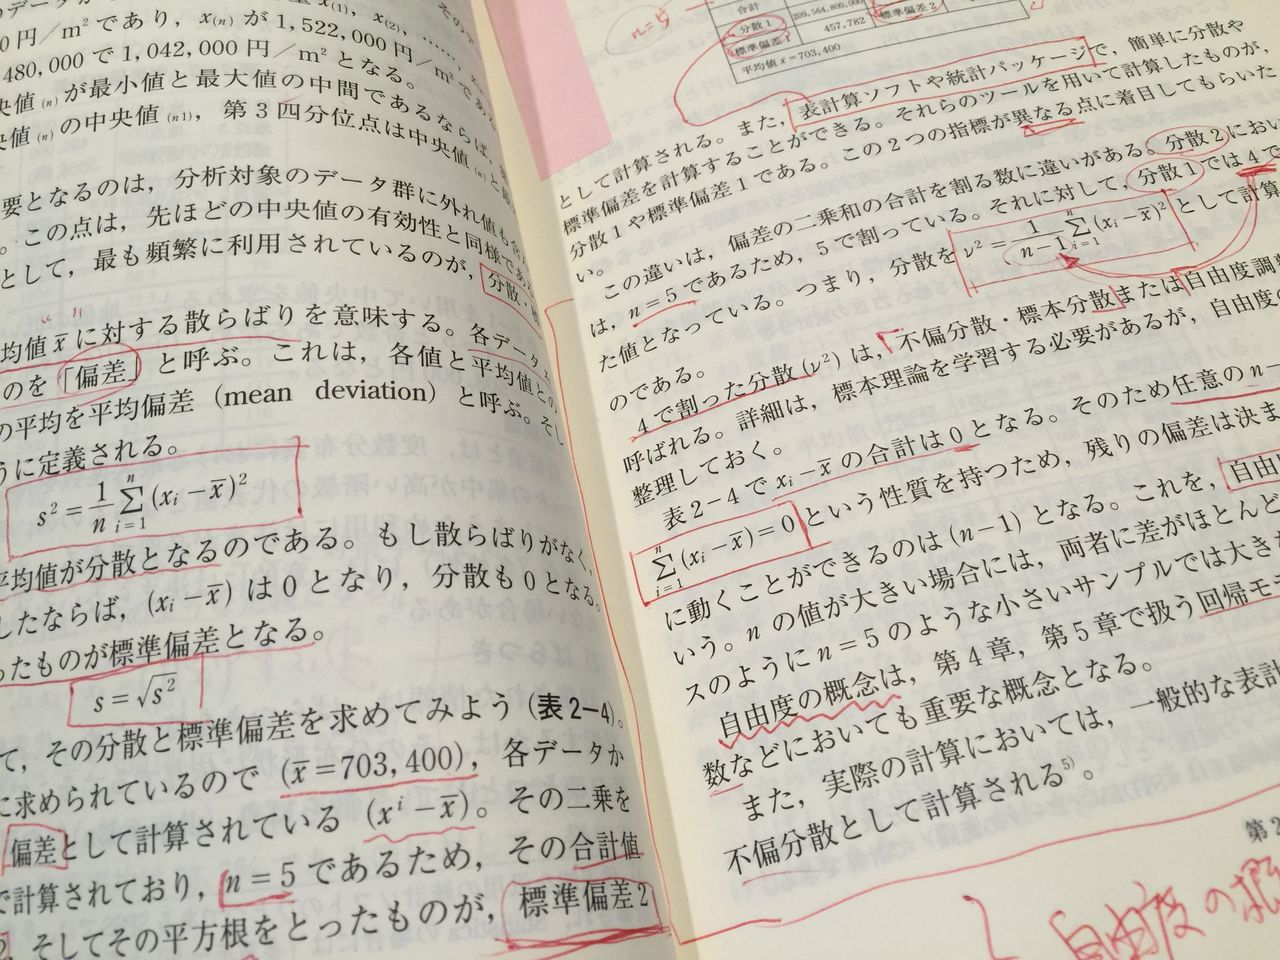 円/m²であり，x(n) が 1,522,000円/m²であ
480,000で 1,042,000円/m²となる。
央値(n)が最小値と最大値の中間であるならば，
央値(n)の中央値(n1)，第3四分位点は中央値
要となるのは，分析対象のデータ群に外れ値
。この点は，先ほどの中央値の有効性と同様であ
として，最も頻繁に利用されているのが，分散・
均値x̄に対する散らばりを意味する。各データ
のを「偏差」と呼ぶ。これは，各値と平均値との
の平均を平均偏差（mean deviation）と呼ぶ。そし
うに定義される。
s² = 1/n Σ_{i=1}^{n} (x_i − x̄)²
平均値が分散となるのである。もし散らばりがなく，
したならば，(x_i − x̄) は0となり，分散も0となる。
ったものが標準偏差となる。
s = √s²
て，その分散と標準偏差を求めてみよう（表2-4）。
に求められているので (x̄ = 703,400)，各データか
偏差として計算されている (xⁱ − x̄)。その二乗を
で計算されており，n = 5 であるため，その合計値
2，そしてその平方根をとったものが，標準偏差2
n=5
合計 209,564,800,000
分散1 457,782 標準偏差2
標準偏差1
平均値 x̄ = 703,400
として計算される。また，表計算ソフトや統計パッケージで，簡単に分散や
標準偏差を計算することができる。それらのツールを用いて計算したものが，
分散1や標準偏差1である。この2つの指標が異なる点に着目してもらいた
い。この違いは，偏差の二乗和の合計を割る数に違いがある。分散2におい
は，n = 5 であるため，5で割っている。それに対して，分散1では4で
た値となっている。つまり，分散を ν² = 1/(n−1) Σ_{i=1}^{n} (x_i − x̄)² として計算
のである。
4で割った分散(ν²)は，不偏分散・標本分散または自由度調整
呼ばれる。詳細は，標本理論を学習する必要があるが，自由度
整理しておく。
表2-4で x_i − x̄ の合計は0となる。そのため任意の n −
Σ_{i=1}^{n} (x_i − x̄) = 0 という性質を持つため，残りの偏差は決ま
に動くことができるのは (n − 1) となる。これを，自由
いう。n の値が大きい場合には，両者に差がほとんど
スのように n = 5 のような小さいサンプルでは大き
自由度の概念は，第4章，第5章で扱う回帰モ
数などにおいても重要な概念となる。
また，実際の計算においては，一般的な表計
不偏分散として計算される⁵⁾。
第2
自由度の概